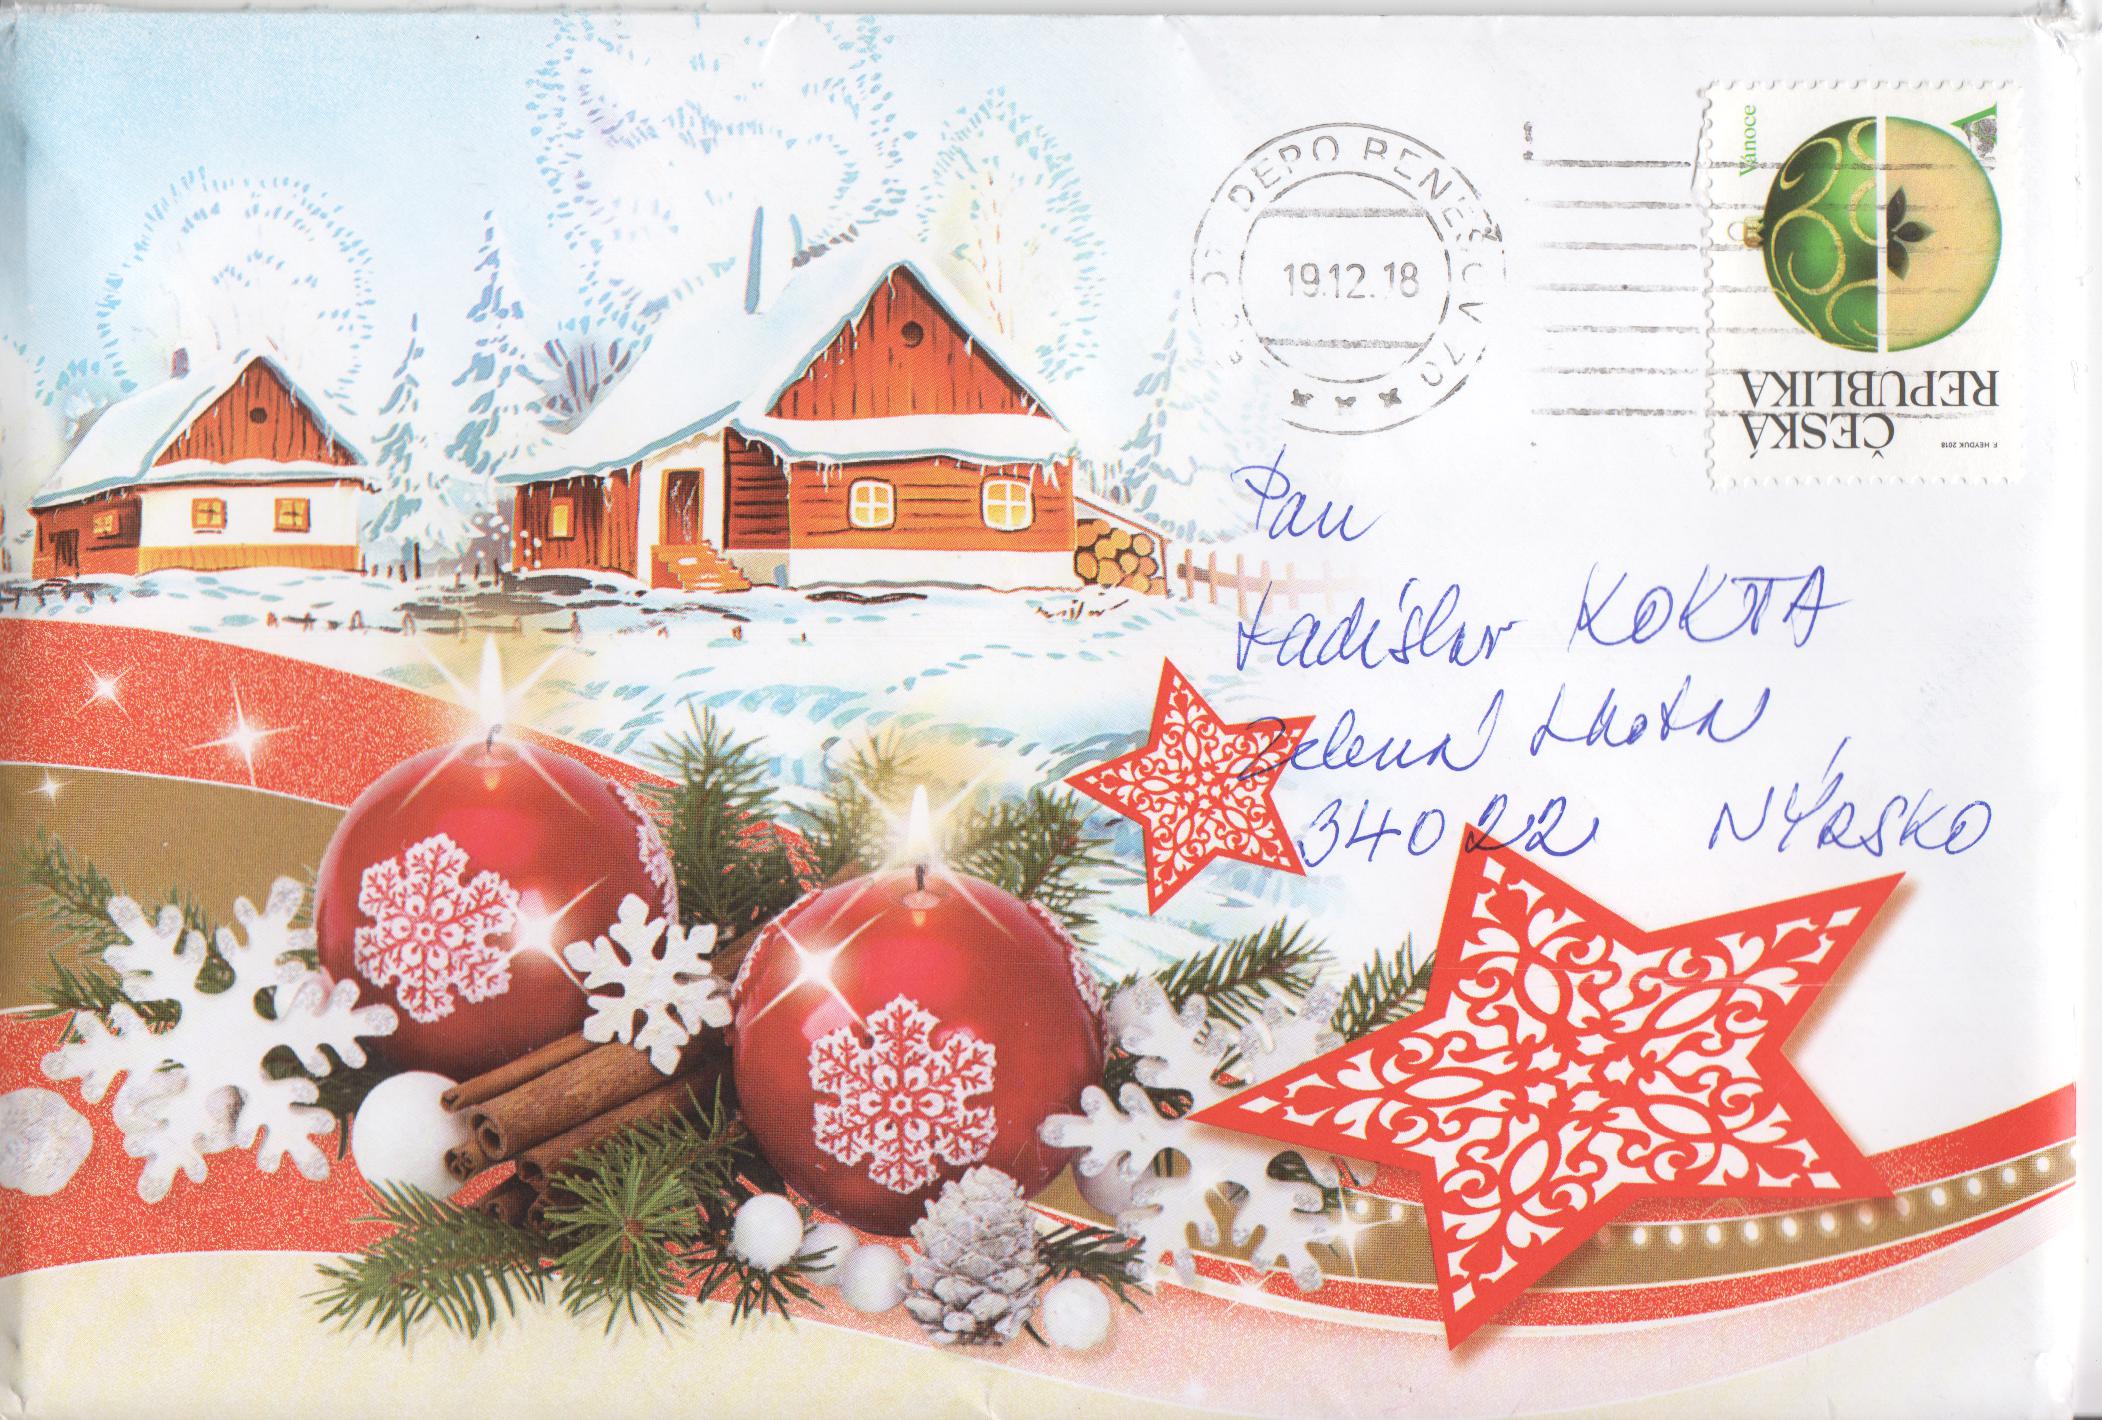 DEPO BENEŠOV 70
19.12.18
Vánoce
A
ČESKÁ
REPUBLIKA
F. HEYDUK 2018
Pan
Ladislav KOKTA
Zelená Lhota
34022 NÝRSKO